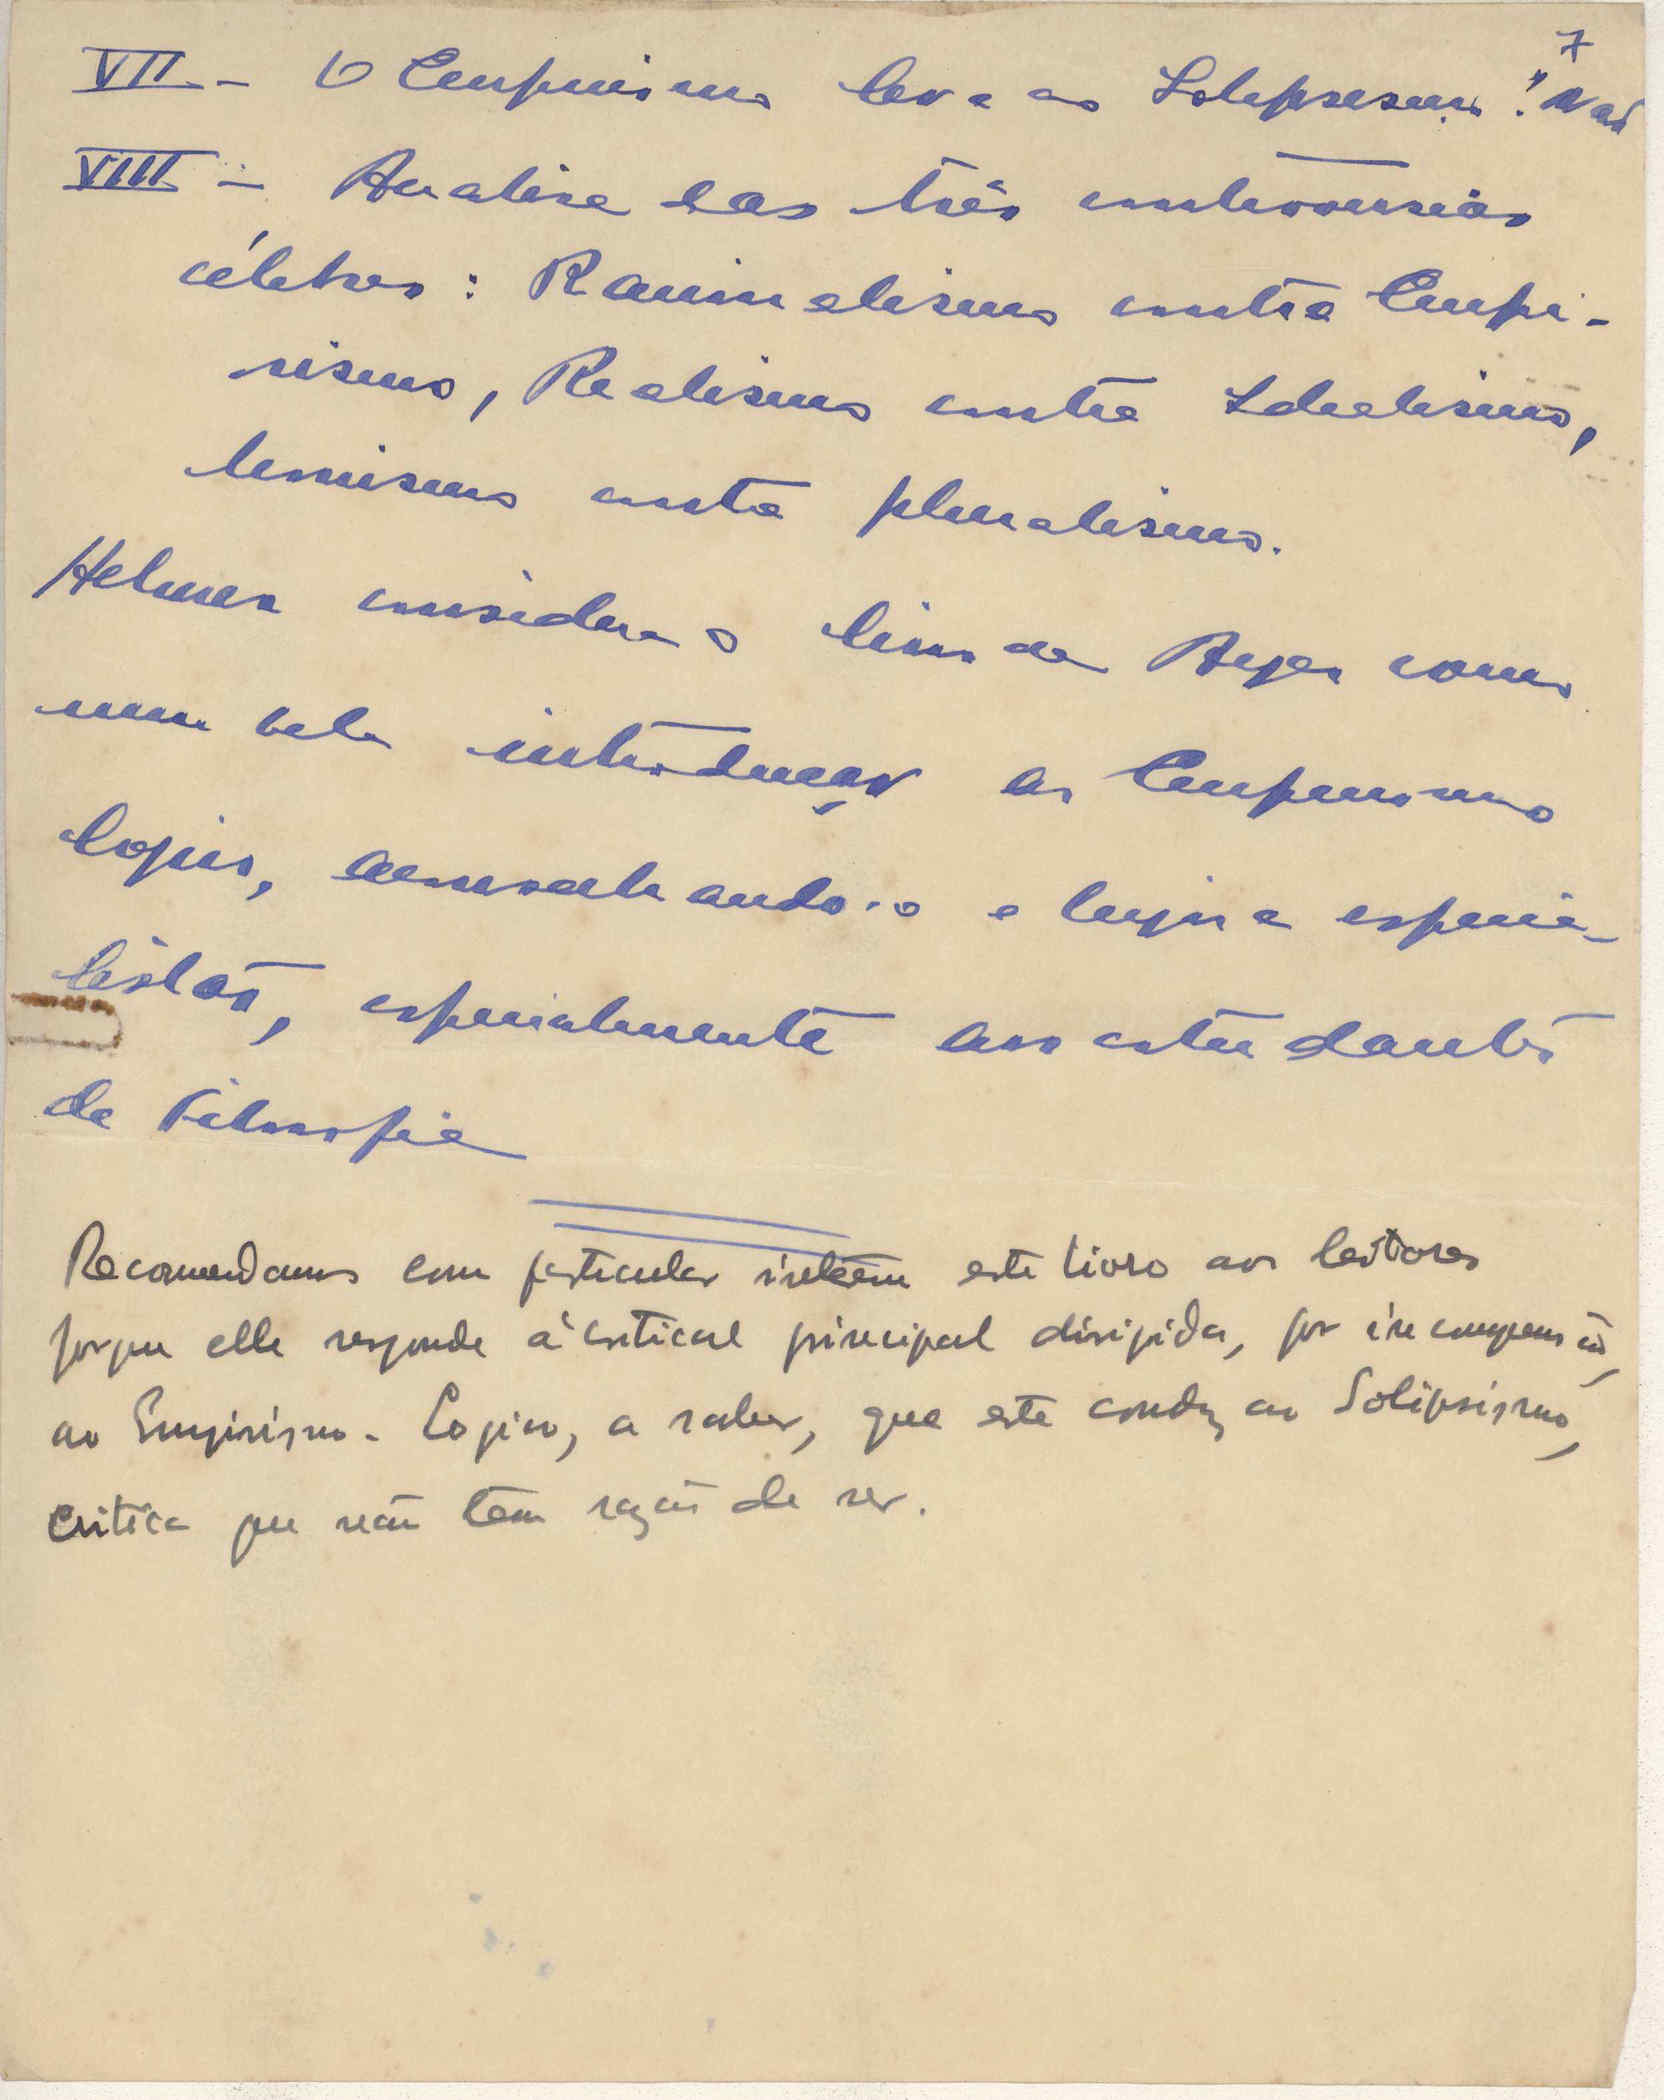 7
VII - O Empirismo leva ao Solipsismo? Não
VIII - Analise das três controversias
célebres: Racionalismo contra Empi-
rismo, Realismo contra Idealismo,
Monismo contra pluralismo.
Helmer considera o livro de Ayer como
uma bela introdução ao Empirismo
logico, aconselhando-o a especia-
listas, especialmente aos estudantes
de Filosofia
Recomendamos com particular este livro aos leitores
porque elle responde à critica principal dirigida, por incompensão,
ao Empirismo-Logico, a saber, que este conduz ao Solipsismo,
critica que não tem razão de ser.